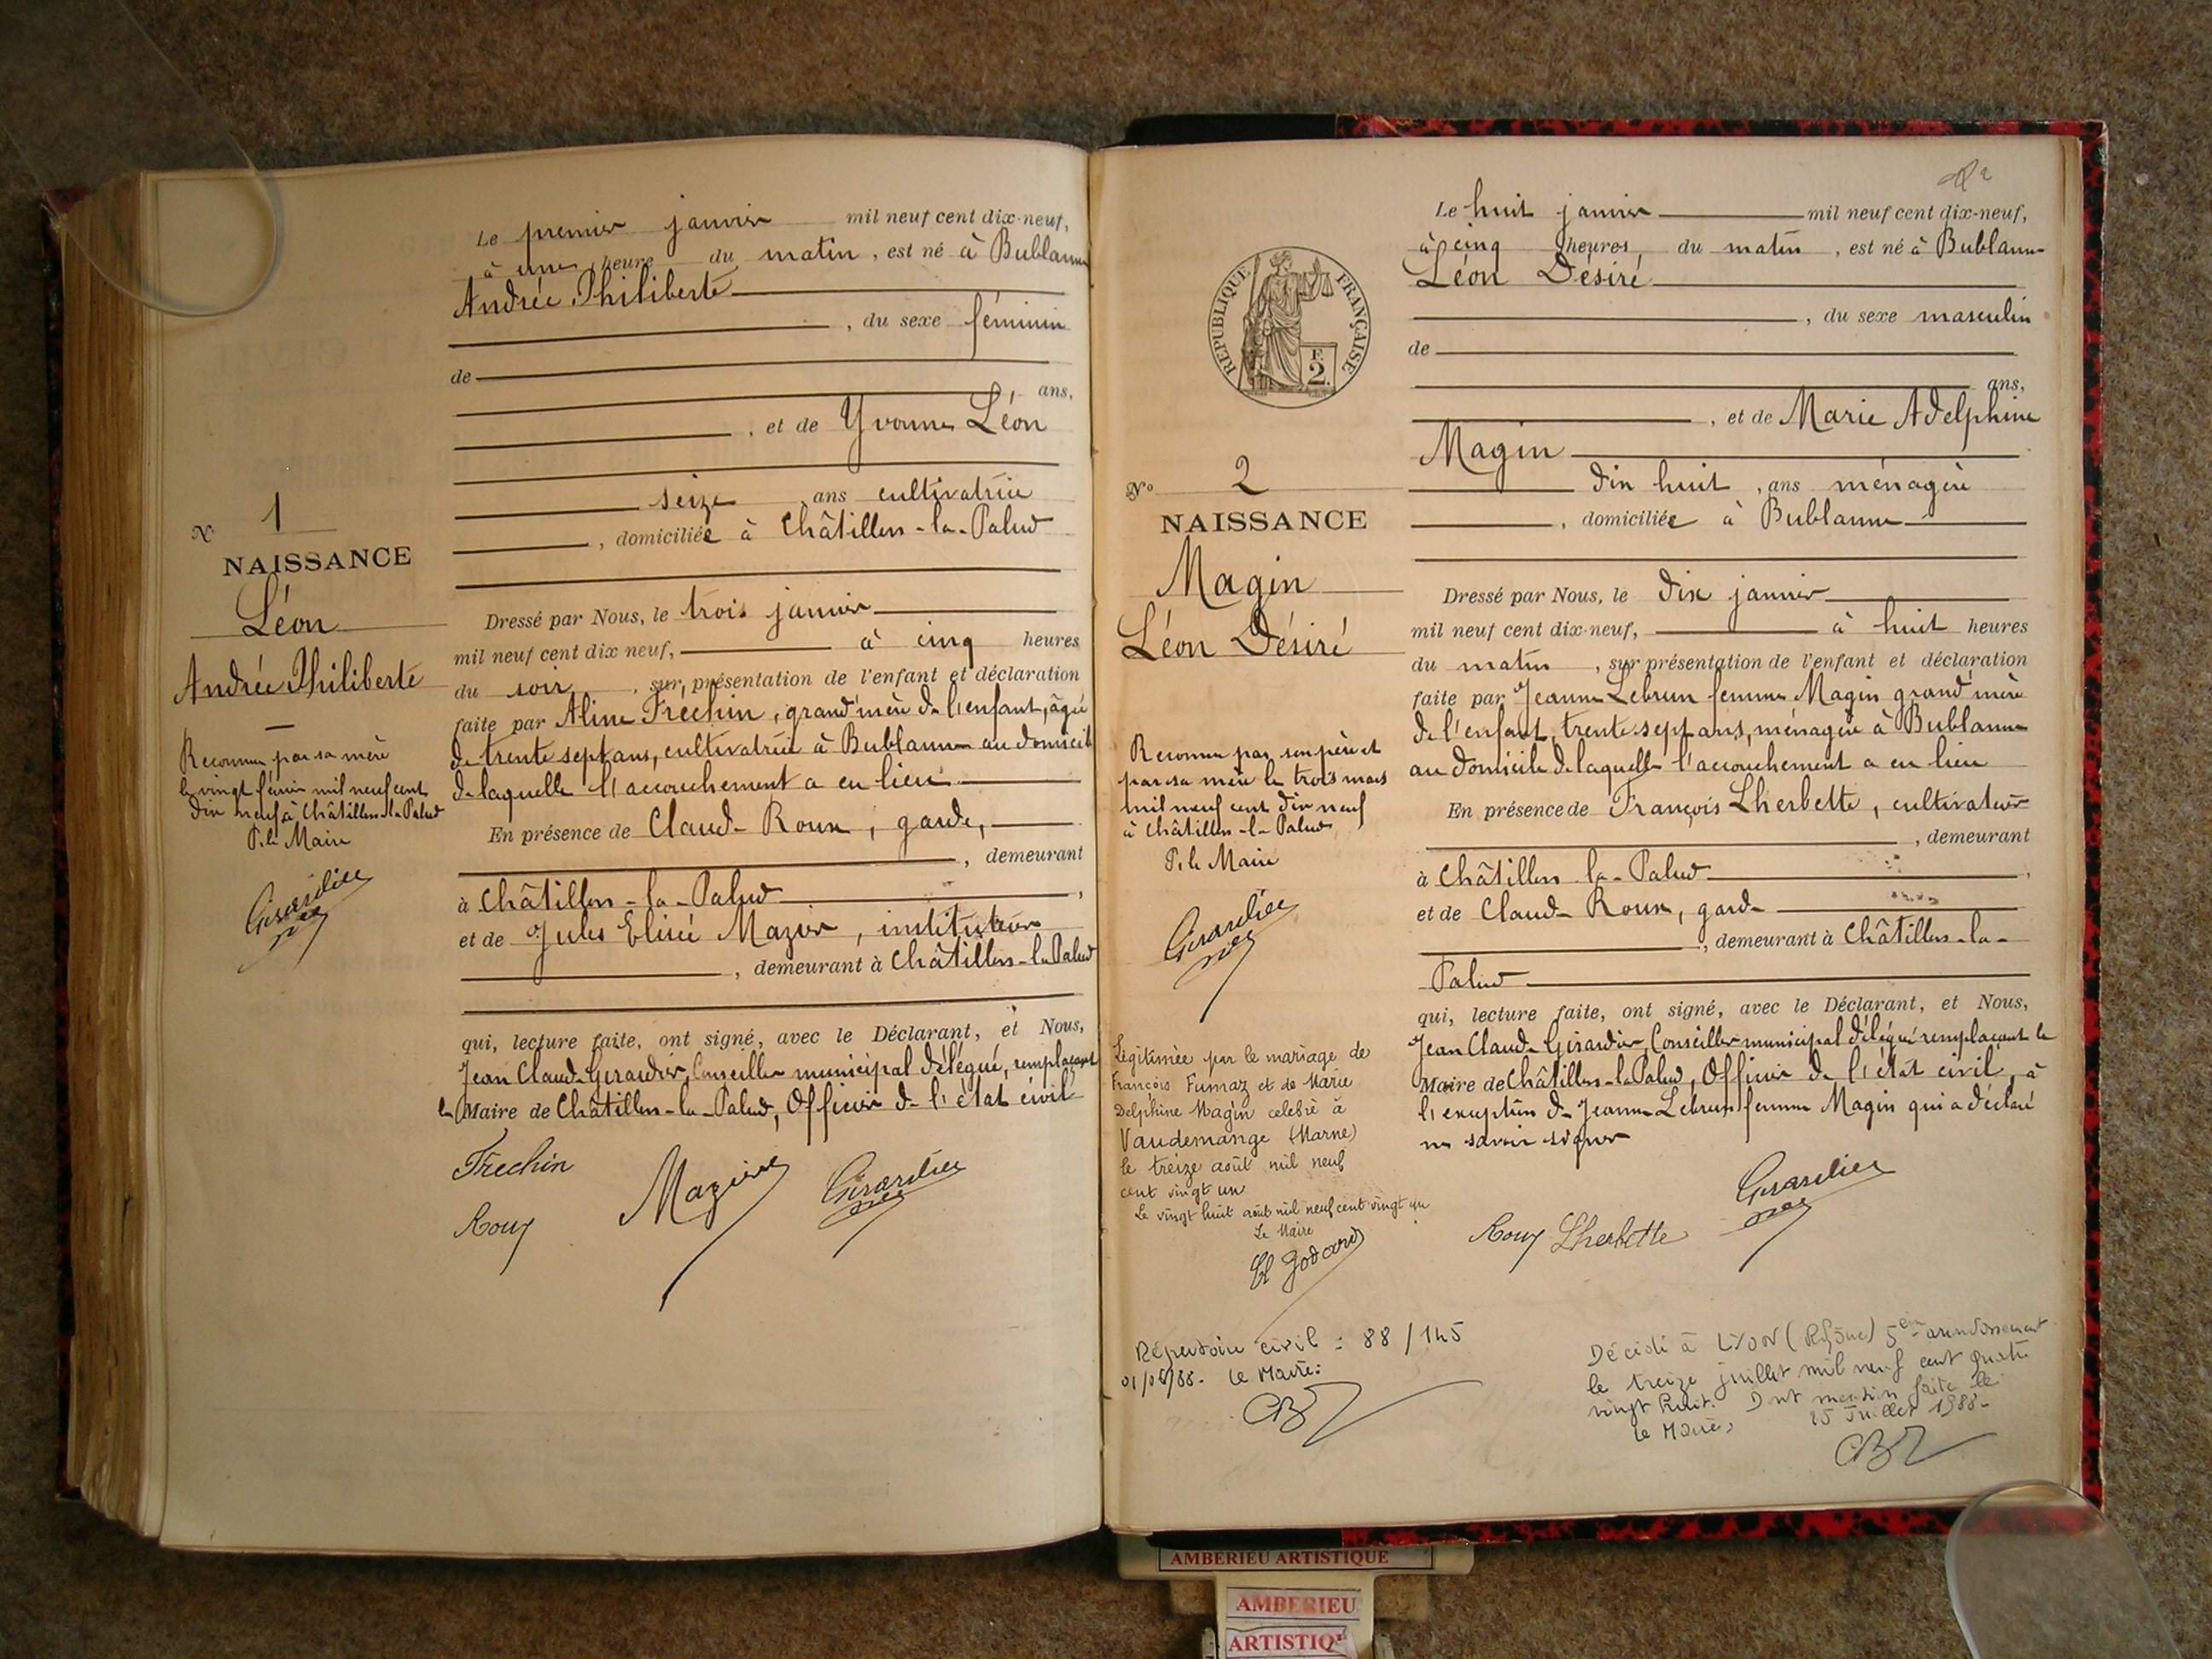 Le premier janvier mil neuf cent dix-neuf,
à une heure du matin, est né à Bublanne
Andrée Philiberte
, du sexe féminin
de
ans,
, et de Yvonne Léon
seize ans cultivatrice
, domiciliée à Châtillon-la-Palud
N° 1
NAISSANCE
Léon
Andrée Philiberte
Reconnue par sa mère
le vingt février mil neuf cent
dix neuf à Châtillon-la-Palud
P. le Maire
Girardier
Dressé par Nous, le trois janvier
mil neuf cent dix neuf, à cinq heures
du soir, sur présentation de l'enfant et déclaration
faite par Aline Fréchin, grand'mère de l'enfant, âgée
de trente sept ans, cultivatrice à Bublanne au domicile
de laquelle l'accouchement a eu lieu
En présence de Claude Roux, garde,
, demeurant
à Châtillon-la-Palud,
et de Jules Elisée Mazier, instituteur
, demeurant à Châtillon-la-Palud
qui, lecture faite, ont signé, avec le Déclarant, et Nous,
Jean Claude Girardier, Conseiller municipal délégué, remplaçant
le Maire de Châtillon-la-Palud, Officier de l'état civil
Frechin
Mazier
Girardier
Roux
Le huit janvier mil neuf cent dix-neuf,
à cinq heures du matin, est né à Bublanne
Léon Désiré
, du sexe masculin
de
ans,
, et de Marie Adelphine
Magin
dix huit, ans ménagère
, domiciliée à Bublanne
REPUBLIQUE FRANÇAISE
F.
2.
N° 2
NAISSANCE
Magin
Léon Désiré
Reconnu par son père et
par sa mère le trois mars
mil neuf cent dix neuf
à Châtillon-la-Palud
P. le Maire
Girardier
Légitimée par le mariage de
François Fumaz et de Marie
Delphine Magin célébré à
Vaudemange (Marne)
le treize août mil neuf
cent vingt un
Le vingt huit août mil neuf cent vingt un
Le Maire
Godard
Répertoire civil : 88 / 145
le Maire:
Dressé par Nous, le dix janvier
mil neuf cent dix-neuf, à huit heures
du matin, sur présentation de l'enfant et déclaration
faite par Jeanne Lebrun femme Magin grand'mère
de l'enfant, trente sept ans, ménagère à Bublanne
au domicile de laquelle l'accouchement a eu lieu
En présence de François Lherbette, cultivateur
, demeurant
à Châtillon la-Palud,
et de Claude Roux, garde
, demeurant à Châtillon-la-
Palud
qui, lecture faite, ont signé, avec le Déclarant, et Nous,
Jean Claude Girardier, Conseiller municipal délégué remplaçant le
Maire de Châtillon-la-Palud, Officier de l'état civil, à
l'exception de Jeanne Lebrun femme Magin qui a déclaré
ne savoir signer
Girardier
Roux Lherbette
Décédé à LYON (Rhône) 5em arrondissement
le treize juillet mil neuf cent quatre
vingt huit. Dont mention faite le
le Maire, 25 Juillet 1988-
AMBERIEU ARTISTIQUE
AMBERIEU
ARTISTIQ